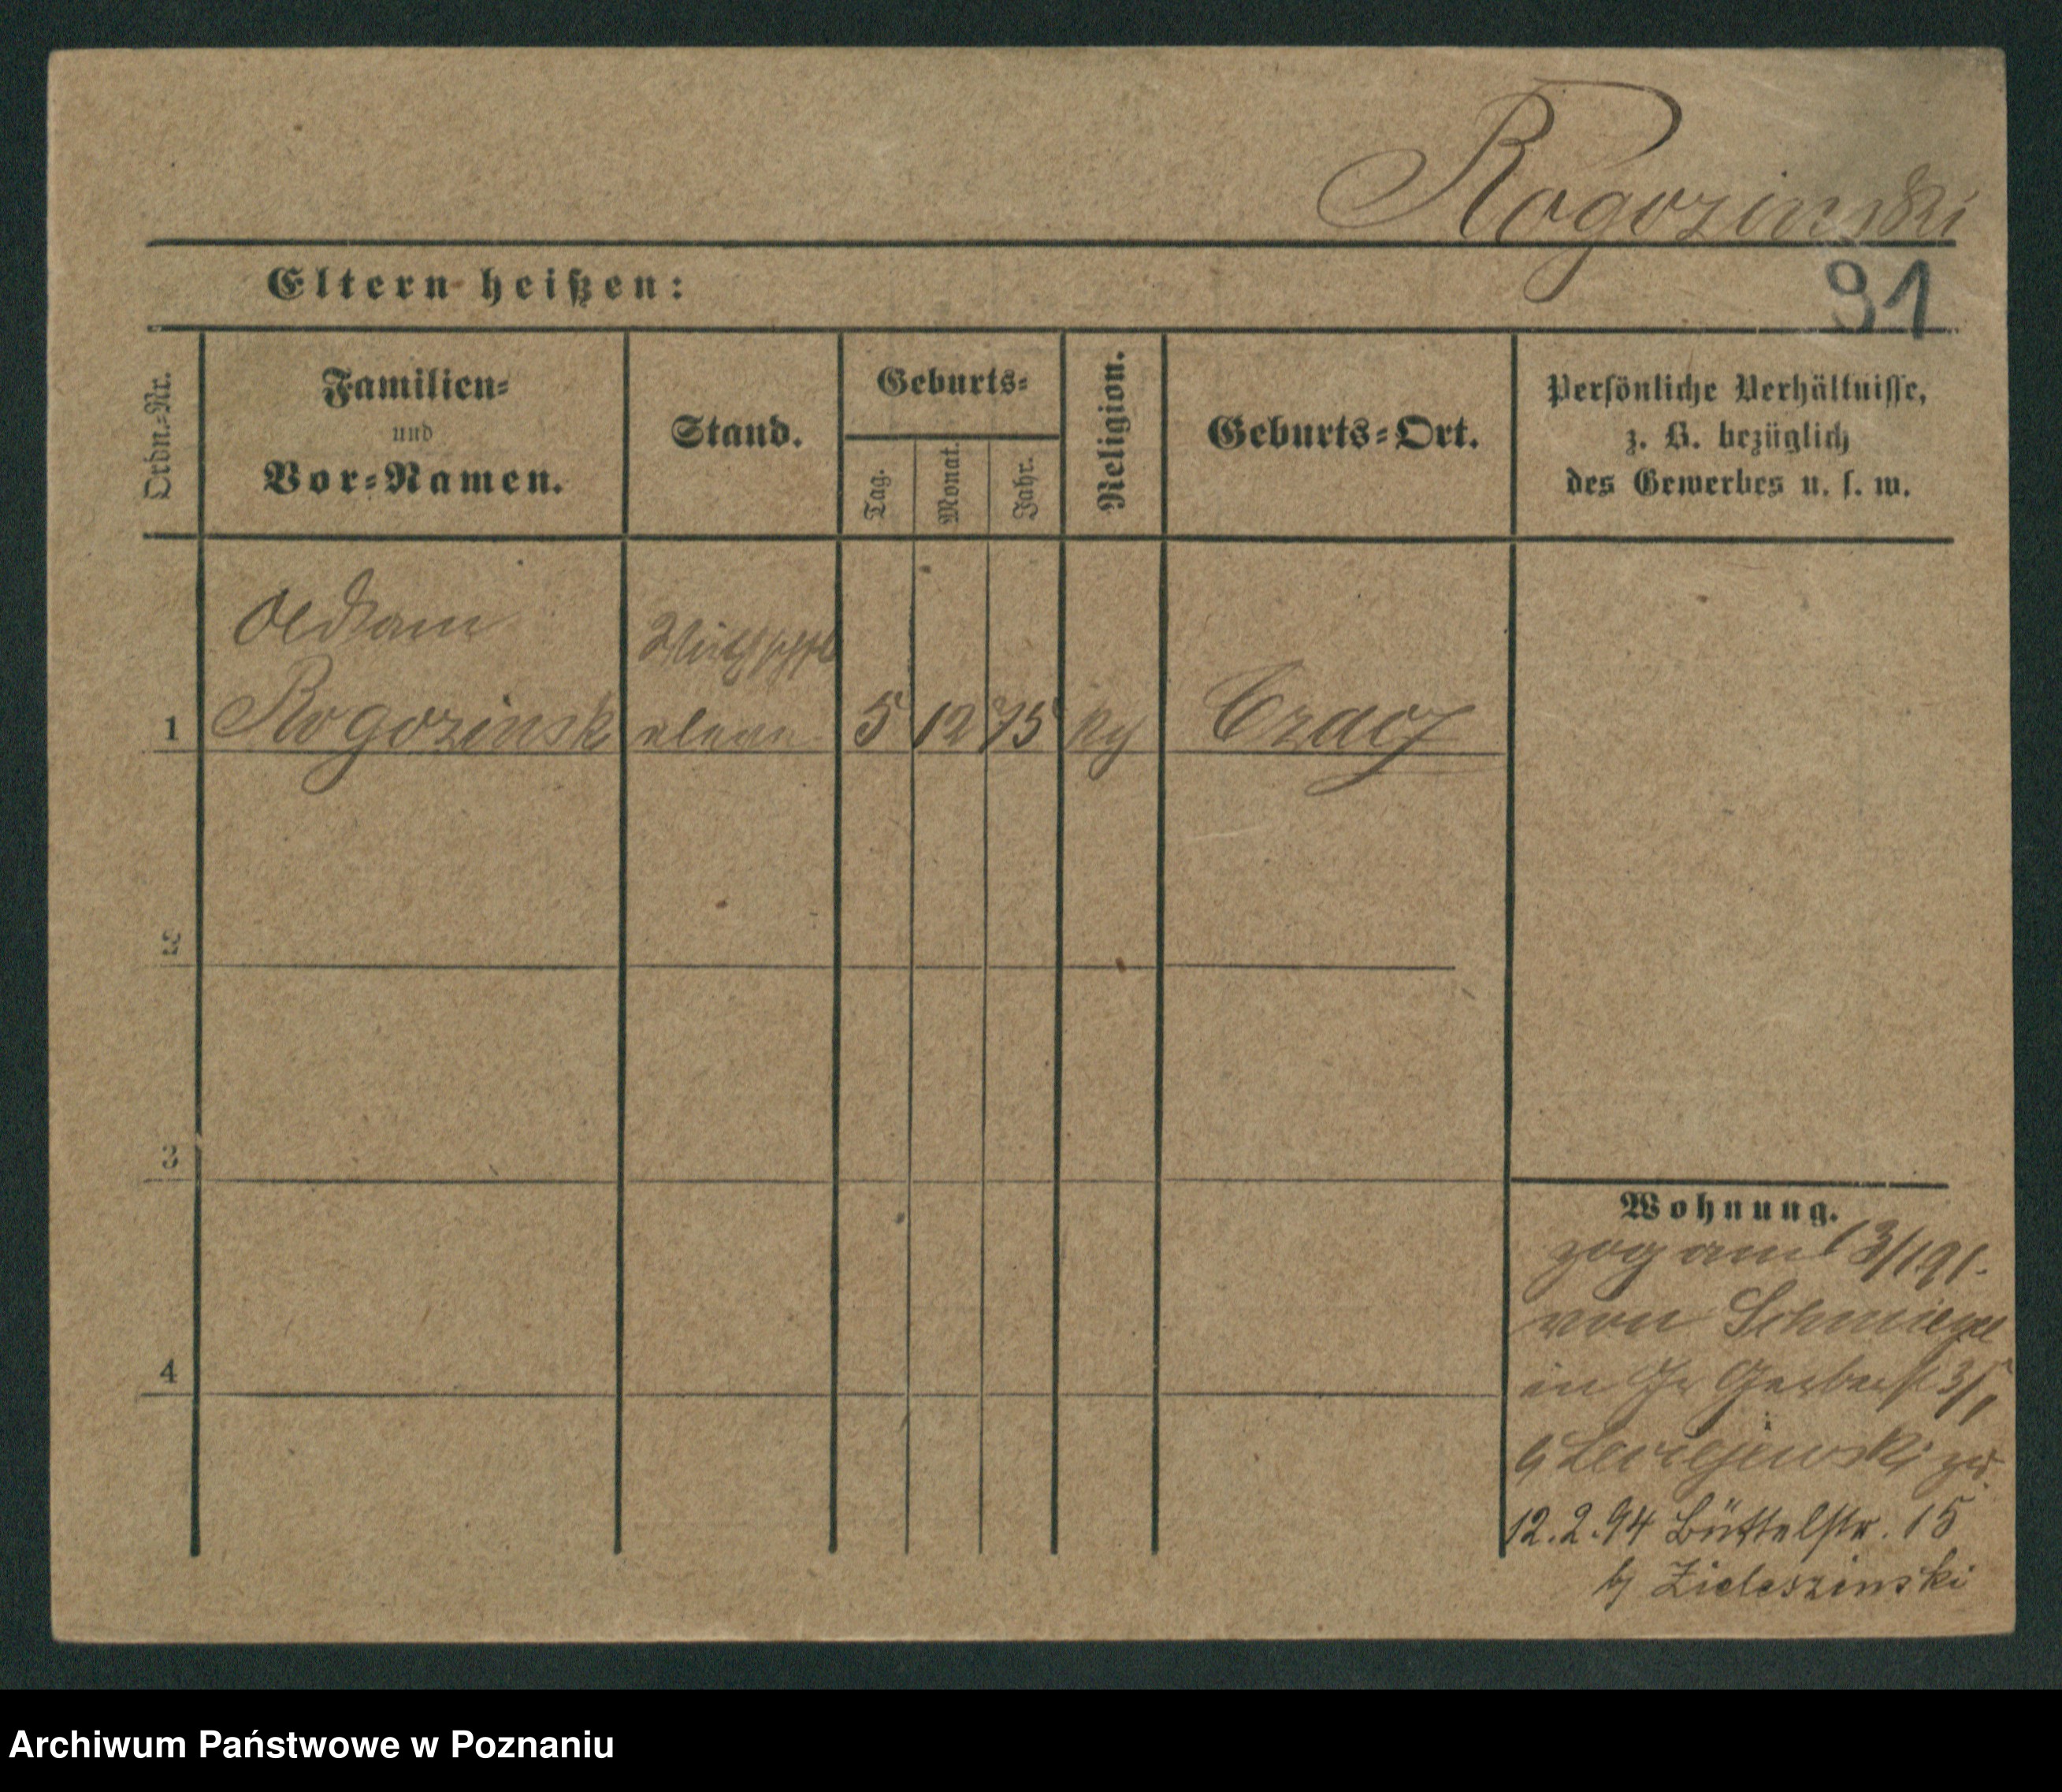 Rogozinski
Eltern heißen:
91
Ordn.=Nr.
Familien=
und
Vor=Namen.
Stand.
Geburts=
Tag.
Monat.
Jahr.
Religion.
Geburts=Ort.
Persönliche Verhältnisse,
z. B. bezüglich
des Gewerbes u. s. w.
1
Rogozinsk
5
12
75
Czacz
2
3
4
Wohnung.
zog am 13/1 91.
von Schmiegel
in Gr Gerberst
12.2.94 Büttelstr. 15
b/ Zieleszinski
Archiwum Państwowe w Poznaniu